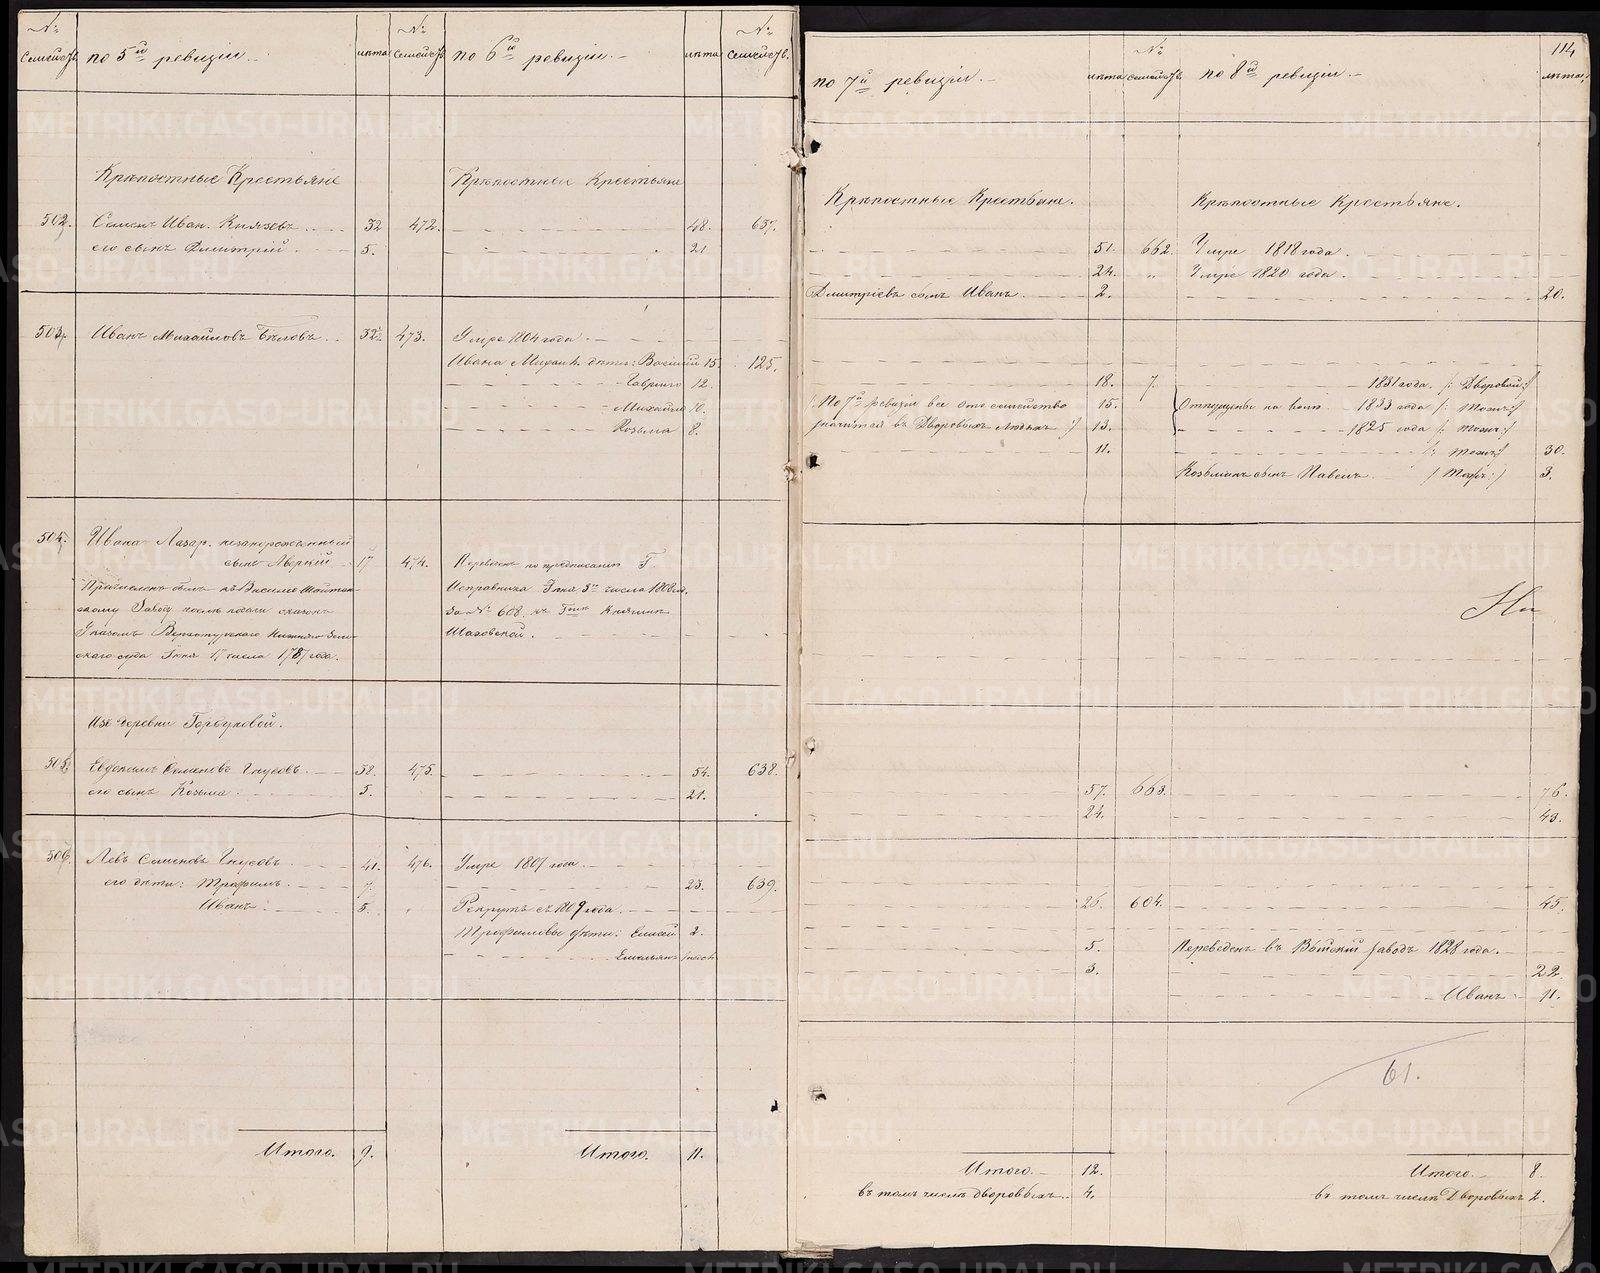 № семейств. по 5й ревизіи. лѣта № семейств. по 6й ревизіи. лѣта № семейств.
Крѣпостные Крестьяне Крѣпостные Крестьяне
502. Семенъ Иван. Князевъ 32 472. 48. 637.
его сынъ Дмитрій 5. 21
503. Иванъ Михайловъ Бѣловъ 32. 473. Умре 1804 года.
Ивана Михаил. дѣти: Василій 15. 125.
Гаврило 12.
Михайло 10.
Козьма 8.
504. Ивана Лазар.
сынъ Аверкій 17 474. Переведенъ по предписанію Г.
Причисленъ былъ къ Висимо Шайтан- Исправника Іюня 3го числа 1808 год.
скому Заводу послѣ подачи сказокъ За № 608 къ Княгинѣ
Указомъ Верхотурскаго Нижняго Зем- Шаховской.
скаго суда Іюня 17 числа 1787 года.
Изъ деревни Горбуновой.
505. Евдокимъ Семеновъ Гнусовъ 38. 475. 54. 638.
его сынъ Козьма 5. 21.
506. Левъ Семеновъ Гнусовъ 41. 476. Умре 1807 года.
его дѣти: Трофимъ. 7. 23. 639.
Иванъ 5. Рекрутъ съ 1809 года.
Трофимовы дѣти: Елисей 2.
Емельянъ
Итого. 9. Итого. 11.
114
по 7й ревизіи. лѣта № семейств. по 8й ревизіи. лѣта
Крѣпостные Крестьяне. Крѣпостные Крестьяне.
51. 662. Умре 1818 года.
24. " Умре 1820 года.
Дмитріевъ сынъ Иванъ. 2. 20.
18. 7. 1831 года. /: Дворовый :/
/: По 7й ревизіи все это семейство 15. Отпущены на волю 1833 года /: тожъ :/
значится въ Дворовыхъ людяхъ :/ 13. 1825 года /: тожъ :/
11. /: тожъ :/ 30.
Козьминъ сынъ Павелъ /: тожъ :/ 3.
57. 663. 76.
24. 43.
26. 604. 45.
5. Переведенъ въ Заводъ 1828 года.
3. 22.
Иванъ 11.
61.
Итого. 12. Итого. 8.
въ томъ числѣ дворовыхъ 4. въ томъ числѣ Дворовыхъ 2.
METRIKI.GASO-URAL.RU